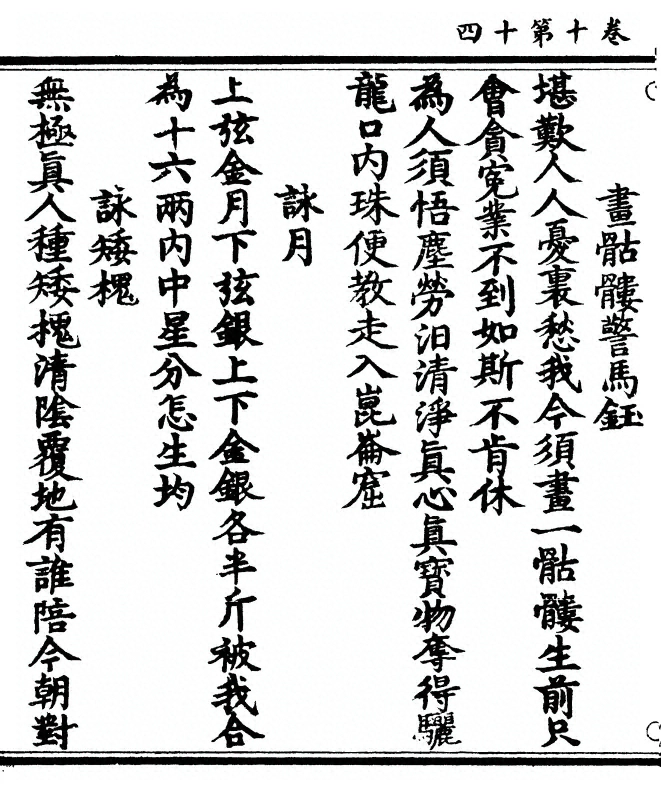 卷十第十四
畫骷髏警馬鈺
堪歎人人憂裏愁我今須畫一骷髏生前只
會貪寃業不到如斯不肯休
為人須悟塵勞汩清淨眞心眞寳物奪得驪
龍口内珠便教走入崑崙窟
詠月
上弦金月下弦銀上下金銀各半斤被我合
為十六兩内中星分怎生均
詠矮槐
無極眞人種矮槐清陰覆地有誰陪今朝對